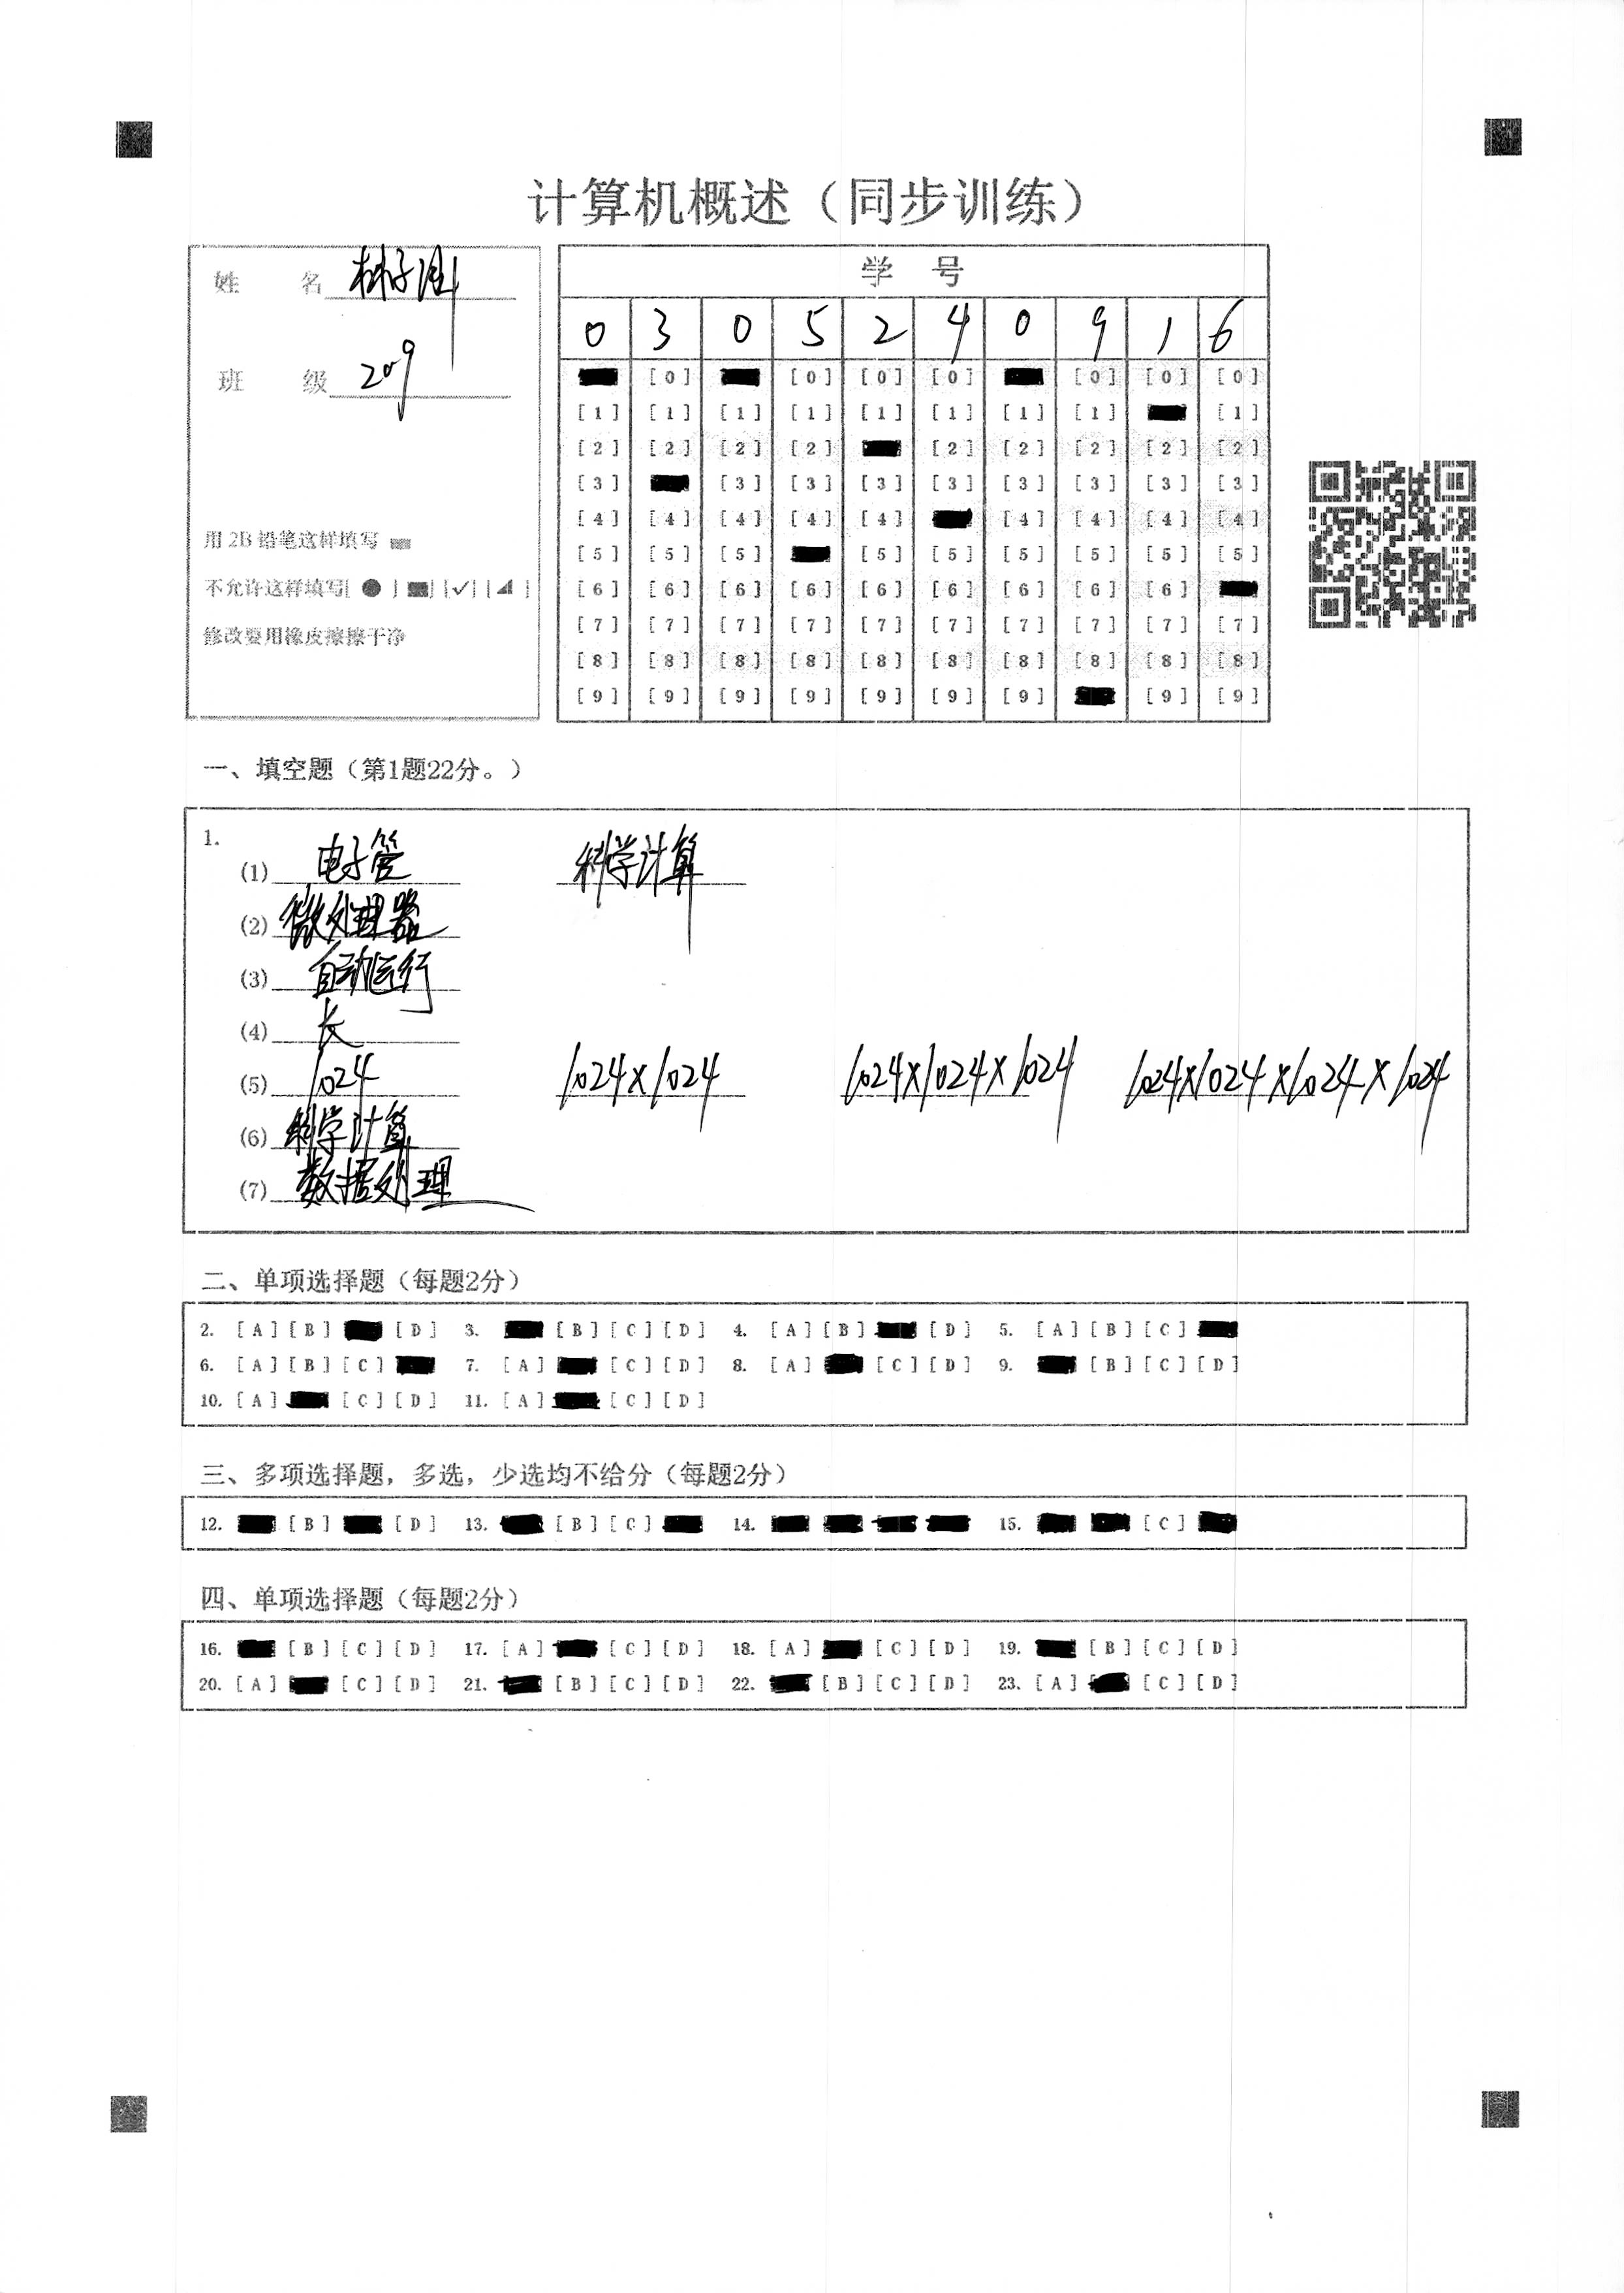 计算机概述（同步训练）
姓 名 林子涵
班 级 209
用 2B 铅笔这样填写
不允许这样填写[ ● ] [■] [✓] [◢ ]
修改要用橡皮擦擦干净
学 号
0 3 0 5 2 4 0 9 1 6
[0] [0] [0] [0] [0] [0] [0]
[1] [1] [1] [1] [1] [1] [1] [1] [1]
[2] [2] [2] [2] [2] [2] [2] [2] [2]
[3] [3] [3] [3] [3] [3] [3] [3] [3]
[4] [4] [4] [4] [4] [4] [4] [4] [4]
[5] [5] [5] [5] [5] [5] [5] [5] [5]
[6] [6] [6] [6] [6] [6] [6] [6] [6]
[7] [7] [7] [7] [7] [7] [7] [7] [7] [7]
[8] [8] [8] [8] [8] [8] [8] [8] [8] [8]
[9] [9] [9] [9] [9] [9] [9] [9] [9]
一、填空题（第1题22分。）
1.
(1) 电子管 科学计算
(2) 微处理器
(3) 自动运行
(4) 长
(5) 1024 1024×1024 1024×1024×1024 1024×1024×1024×1024
(6) 科学计算
(7) 数据处理
二、单项选择题（每题2分）
2. [A] [B] [D] 3. [B] [C] [D] 4. [A] [B] [D] 5. [A] [B] [C]
6. [A] [B] [C] 7. [A] [C] [D] 8. [A] [C] [D] 9. [B] [C] [D]
10. [A] [C] [D] 11. [A] [C] [D]
三、多项选择题，多选，少选均不给分（每题2分）
12. [B] [D] 13. [B] [C] 14. 15. [C]
四、单项选择题（每题2分）
16. [B] [C] [D] 17. [A] [C] [D] 18. [A] [C] [D] 19. [B] [C] [D]
20. [A] [C] [D] 21. [B] [C] [D] 22. [B] [C] [D] 23. [A] [C] [D]